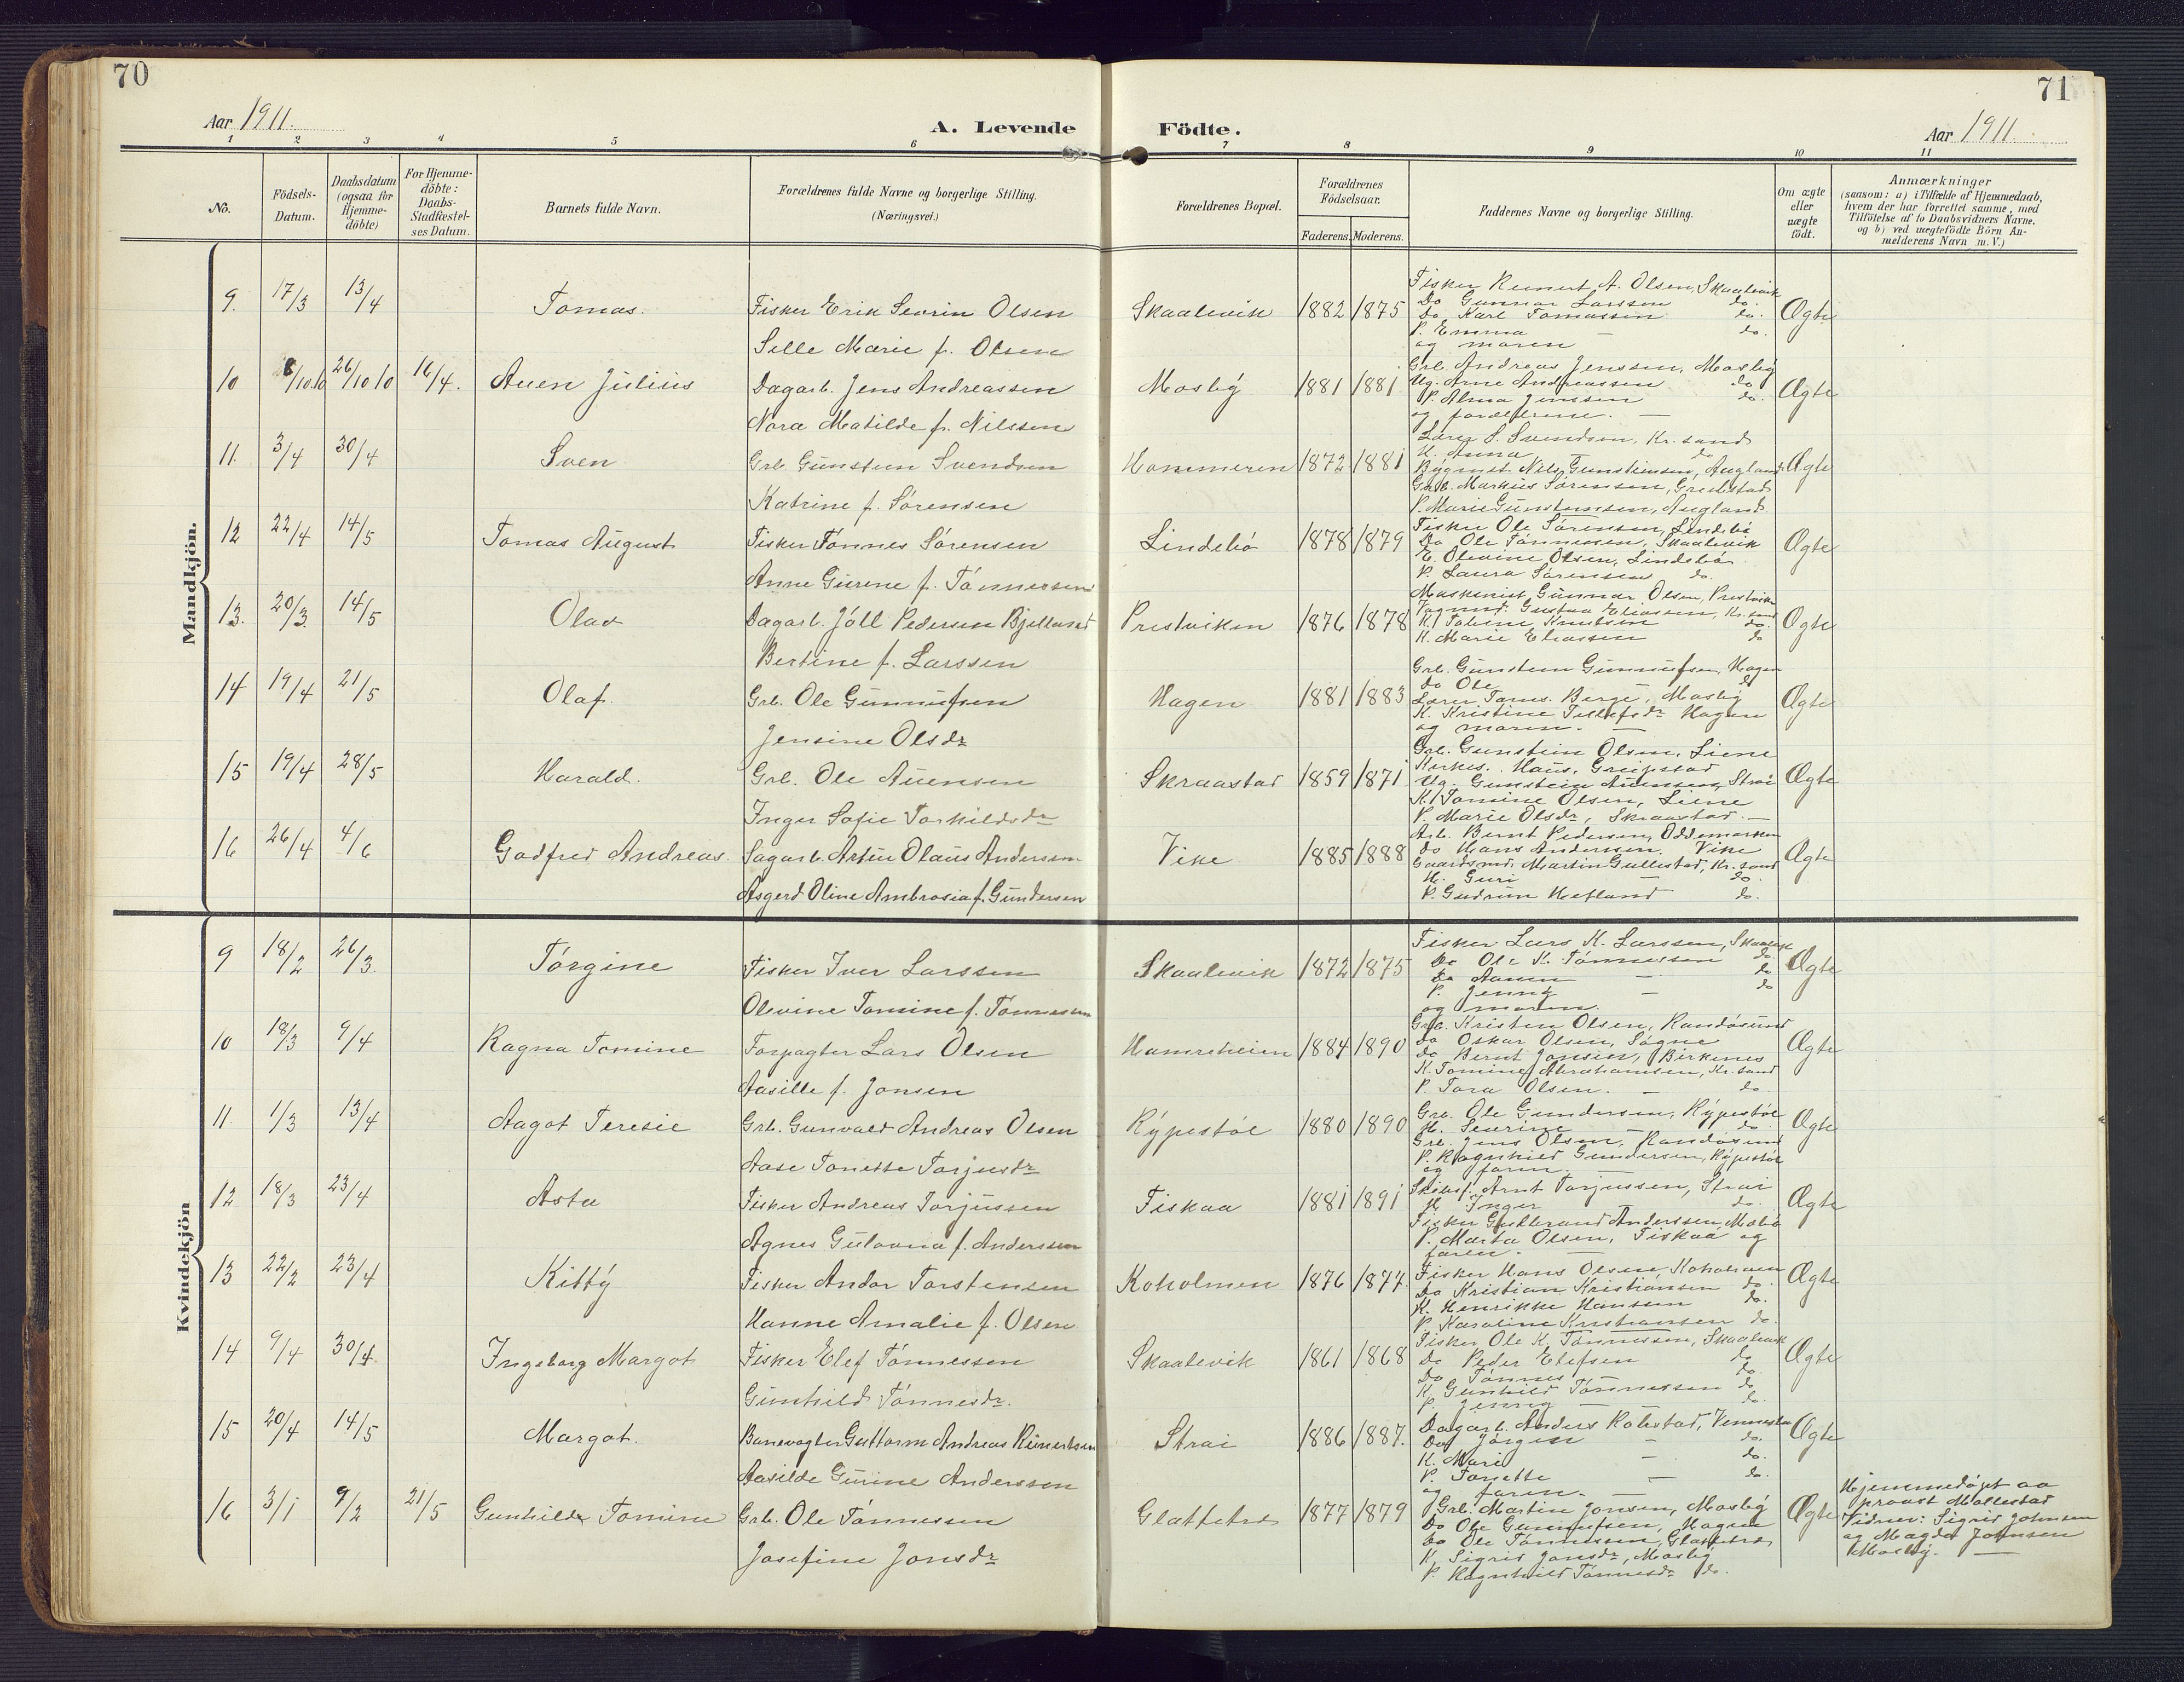 70
71
Aar 1911.
A. Levende Födte.
Aar 1911.
1 2 3 4 5 6 7 8 9 10 11
No.
Födsels-Datum.
Daabsdatum (ogsaa for Hjemme-döbte)
For Hjemme-döbte: Daabs-Stadfæstel-ses Datum.
Barnets fulde Navn.
Forældrenes fulde Navne og borgerlige Stilling. (Næringsvei.)
Forældrenes Bopæl.
Forældrenes Födselsaar.
Faderens. Moderens.
Faddernes Navne og borgerlige Stilling.
Om ægte eller uægte födt.
Anmærkninger
(saasom: a) i Tilfælde af Hjemmedaab,
hvem der har forrettet samme, med
Tilföielse af to Daabsvidners Navne.
og b) ved uægtefödte Börn An-
melderens Navn m. V.)
Mandkjön.
9. 17/3 13/4 Tomas. Fisker Erik Sevrin Olsen Skaalevik 1882 1875 Ægte
Sille Marie f. Olsen
Fisker Reinert A. Olsen, Skaalevik
Do Gunnar Larssen do.
Do Karl Tomassen do.
P. Emma — do.
og moren
10 26/10 10 16/4. Auen Julius Dagarb. Jens Andreassen Mosby 1881 1881 Ægte
Nora Matilde f. Nilssen
Grb. Andreas Jenssen, Mosby
Ug. Arne Andreassen do
P. Alma Jenssen do.
og forældrene. —
11. 3/4 30/4 Sven Grb. Gunstein Svendsen Hommeren 1872 1881 Ægte
Katrine f. Sørensen
Lærer S. Svendsen, Kr.sand
K. Anna do
Bygmst. Nils Gunsteinsen, Augland
Grb. Markus Sørensen,
P. Marie Gunsteinsen, Augland
12 22/4 14/5 Tomas August Fisker Tønnes Sørensen Lindebø 1878 1879 Ægte
Anne Gurene f. Tønnessen
Fisker Ole Sørensen, Lindebø
Do Ole Tønnessen, Skaalevik
E. Olevine Olsen, Lindebø
P. Laura Sørensen do.
13. 20/3 14/5 Olav Dagarb. Jøll Pedersen Bjelland Prestviken 1876 1878 Ægte
Bertine f. Larssen
Maskinist Gunnar Olsen, Prestviken
Gustav Eliassen, Kr.sand
K. Knutsen do.
K. Marie Eliassen do
14 19/4 21/5 Olaf. Grb. Ole Gunnufsen Hagen 1881 1883 Ægte
Jensine Olsdr
Grb. Gunstein Gunnufsen, Hagen
do Ole do
Lærer Tarus. Berge, Mosby
K. Kristine Hagen
og moren. —
15 19/4 28/5 Harald. Grb. Ole Auensen Skraastad 1859 1871 Ægte
Inger Sofie Torkildsdr
Grb. Gunstein Olsen, Liene
Kirkes. Haus, Greipstad
Ug. Gunstein Auensen, Strai
K. Tomine Olsen, Liene
P. Marie Olsdr, Skraastad. —
16 26/4 4/6 Godfred Andreas. Dagarb. Artur Olaus Andersen. Vike 1885 1888 Ægte
Asgerd Oline Ambrosia f. Gundersen
Arb. Bernt Pedersen, Oddemarken
Do Hans Andersen. Vike
Gaardsmd. Martin Gullestad, Kr.sand
K. Guri — do.
P. Gudrun Hefland do.
Kvindekjön
9 18/2 26/3. Tørgine Fisker Iver Larssen Skaalevik 1872 1875 Ægte
Olevine Tomine f. Tønnessen
Fisker Lars K. Larssen, Skaalevik
Do Ole K. Tønnessen do
Do — do
P. Jenny — do
og moren.
10 18/3 9/4 Ragna Tomine Forpagter Lars Olsen Hamreheien 1884 1890 Ægte
Aasille f. Jonsen
Grb. Kristen Olsen, Randøsund
do Oskar Olsen, Søgne
do Bernt Jonsen, Birkenes
K. Tomine Abrahamsen, Kr.sand
P. Tora Olsen. — do.
11. 1/3 13/4 Aagot Teresie Grb. Gunvald Andreas Olsen Rypestøl 1880 1890 Ægte
Aase Tonette Torjusdr
Grb. Ole Gundersen, Rypestøl
K. Severine — do.
Grb. Jens Olsen, Randøsund
P. Ragnhild Gundersen, Rypestøl
og faren. —
12 18/3 23/4 Asta Fisker Andreas Torjussen Fiskaa 1881 1891 Ægte
Agnes Gulovna f. Anderssen
Skibsf. Arnt Torjussen, Strai
K. Inger — do.
Fisker Gullbrand Anderssen,
P. Marta Olsen, Fiskaa og
faren. —
13 22/2 23/4 Kitty Fisker Andor Torstensen Koholmen 1876 1877. Ægte
Hanne Amalie f. Olsen
Fisker Hans Olsen Koholmen
Do Kristian Kristiansen do.
K. Henrikke Hansen do.
P. Karoline Kristiansen do.
14 9/4 30/4 Ingeborg Margot Fisker Elef Tønnessen Skaalevik 1861 1868 Ægte
Gunhild Tønnesdr.
Fisker Ole K. Tønnessen, Skaalevik
Do Peder Elefsen do
Do Tønnes — do
K. Gunhild Tønnessen do
P. Jenny — do.
15 20/4 14/5 Margot. Banevogter Guttorm Andreas Reinertsen Strai 1886 1887. Ægte
Aasilde Gurine Anderssen
Dagarb. Anders Røkstad, Vennesla
Do Jørgen — do.
K. Marie — do.
P. Tonette — do.
og faren. —
16 3/1 9/2 21/5 Gunhild Tomine Grb. Ole Tønnessen Glattetre 1877 1879 Ægte
Josefine Jonsdr
Grb. Martin Jonsen, Mosby
Do Ole Gunnufsen, Hagen
Do Ole Tønnessen, Glattetre
K. Sigrid Jonsdr, Mosby
P. Ragnhild Tønnesdr do.
Hjemmedøpt av
provst Mollestad
Vidner: Sigrid Johnsen
og Magda Johnsen
Mosby. —